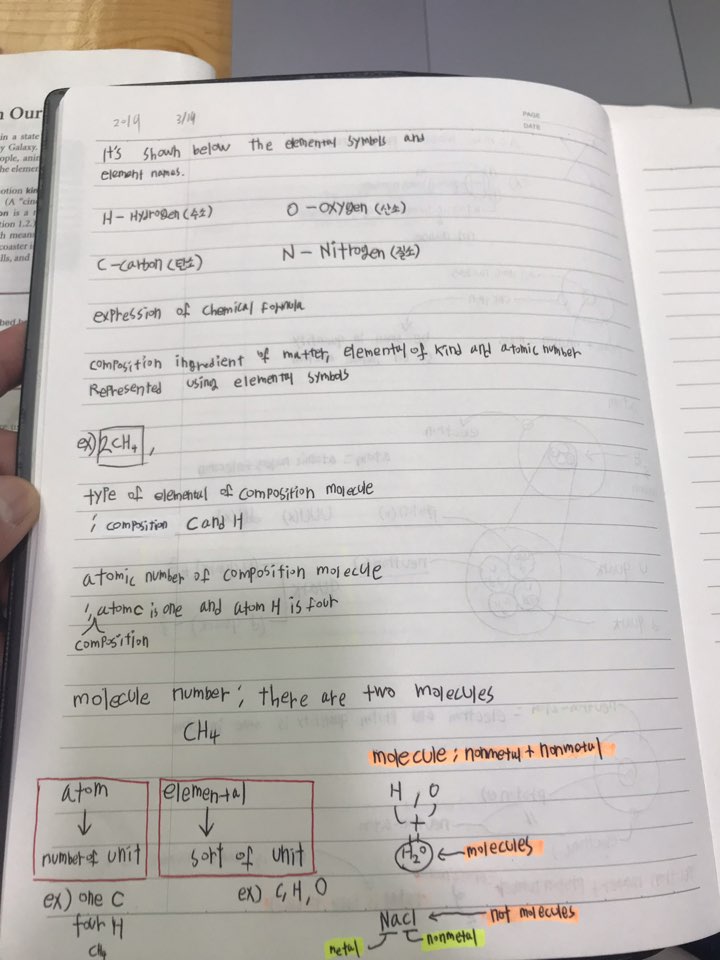 n Our
in a state
y Galaxy.
ople, anim
the elemen
otion kin
(A "cin
on is a
tion 1.2.)
h means
coaster i
lls, and
bed b
PAGE
DATE
2019 3/19
It's shown below the elemental symbols and
element names.
H - Hydrogen (수소) O - Oxygen (산소)
C - carbon (탄소) N - Nitrogen (질소)
expression of chemical formula
composition ingredient of matter, elemental of kind and atomic number
Represented using elemental symbols
ex) 2CH4,
type of elemental of composition molecule
; composition C and H
atomic number of composition molecule
; atom c is one and atom H is four
composition
molecule number ; there are two molecules
CH4
molecule ; nonmetal + nonmetal
atom
↓
number of unit
ex) one C
four H
CH4
elemental
↓
sort of unit
ex) C, H, O
H , O
+
H2O ← molecules
Nacl ← not molecules
metal nonmetal